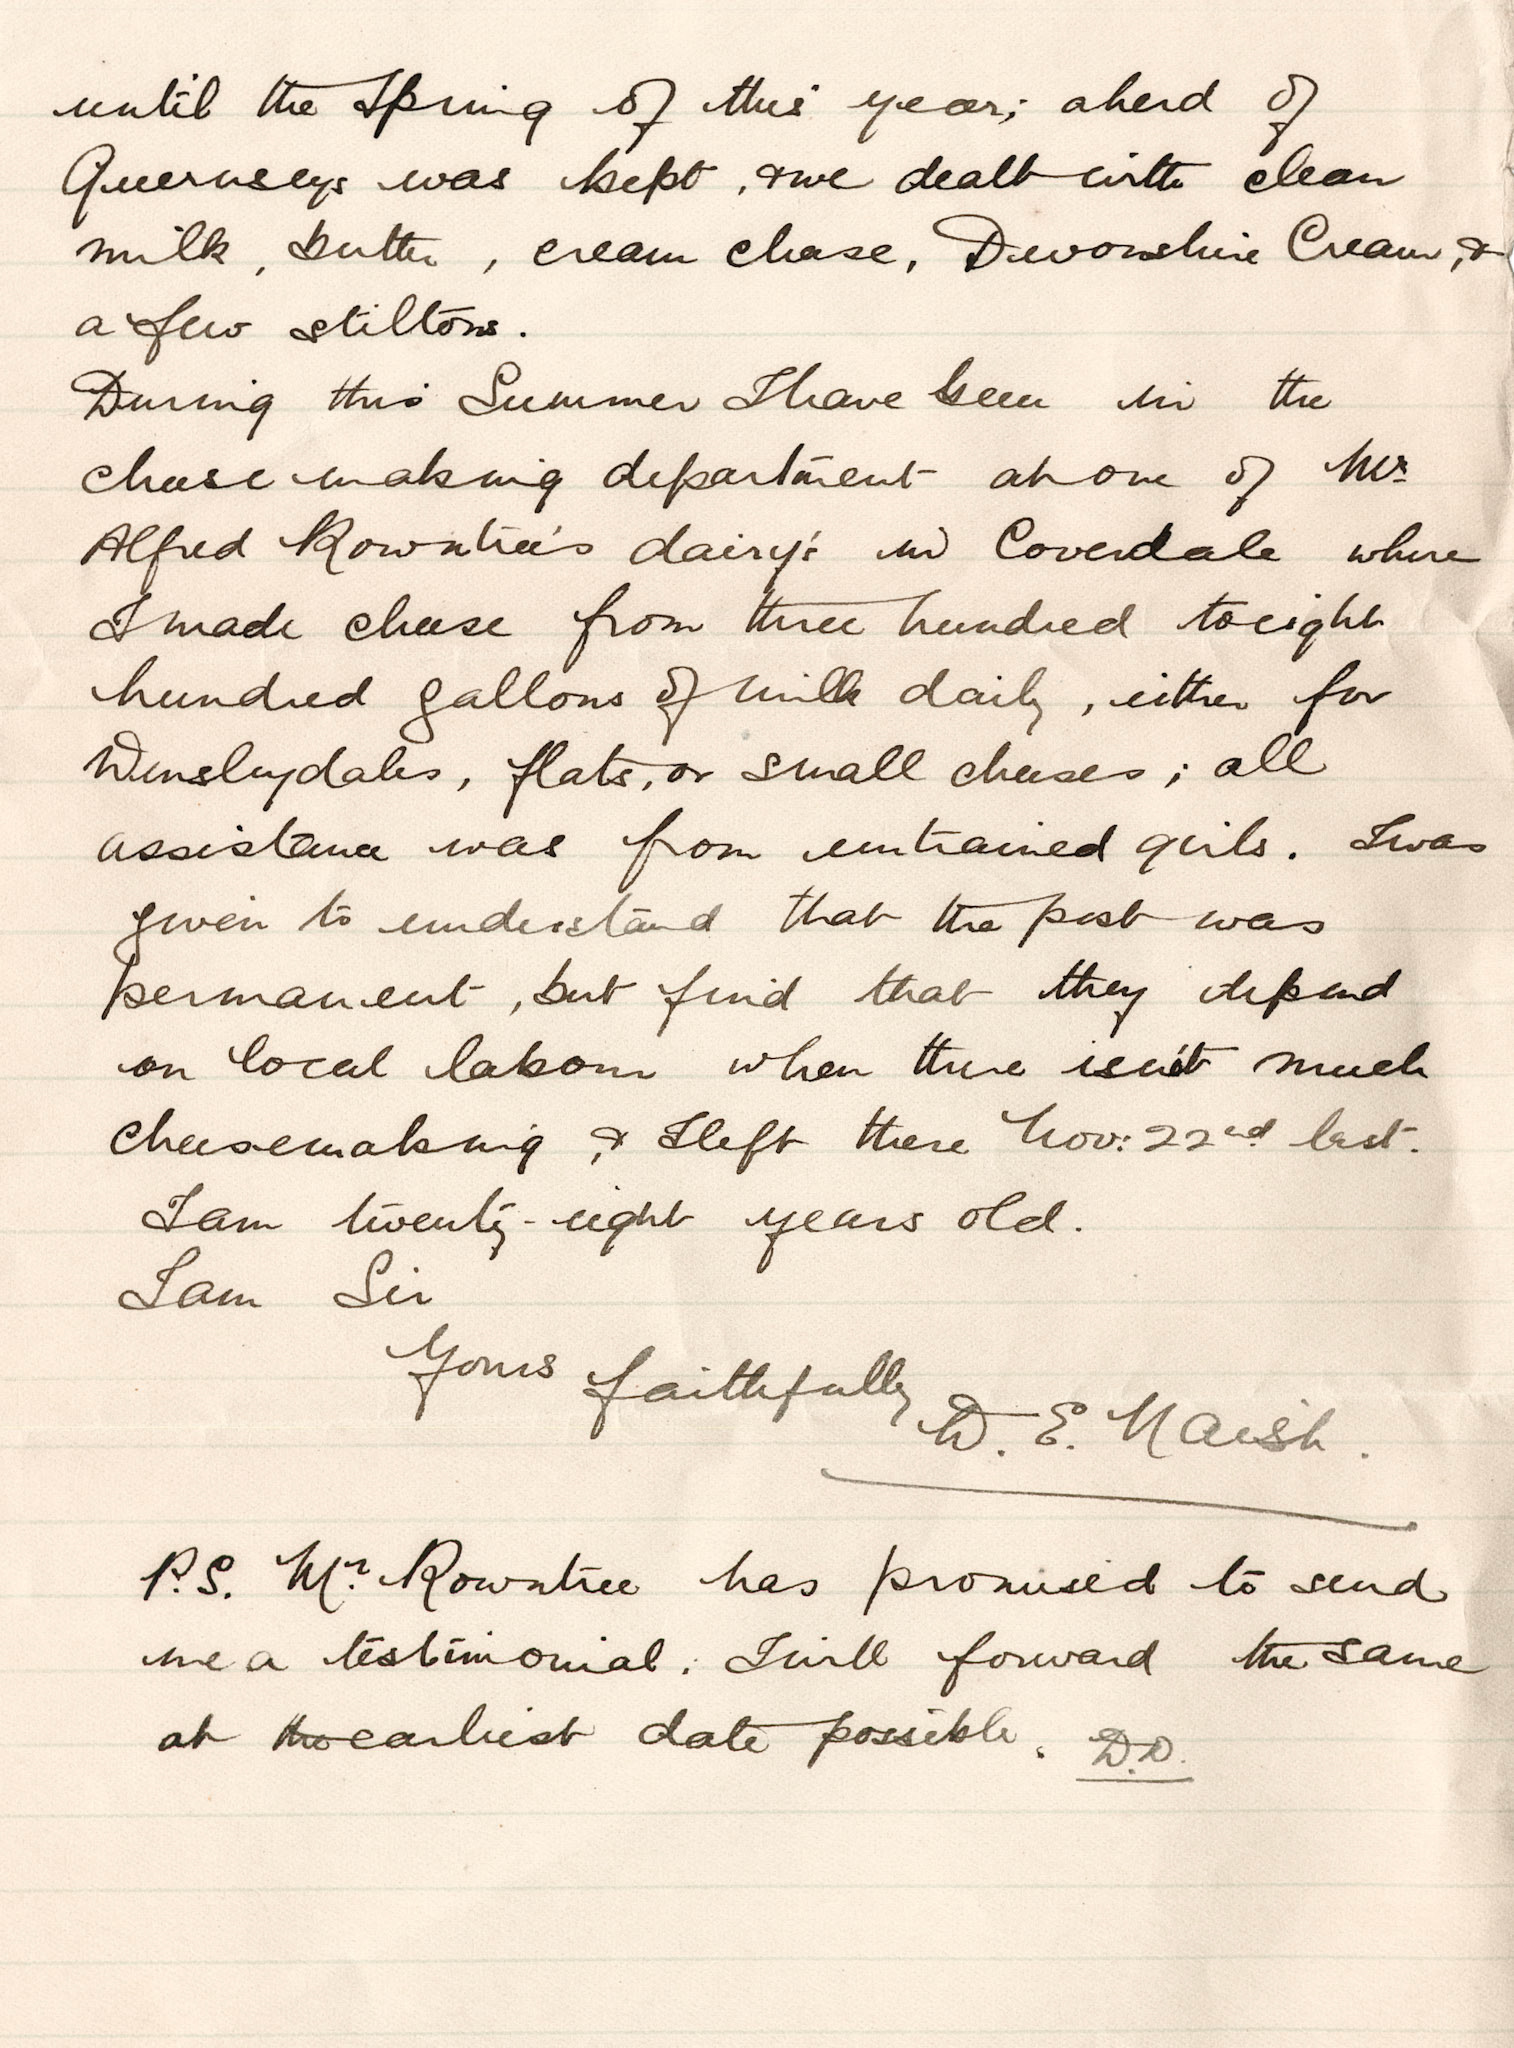 until the Spring of this year; a herd of
Guernseys was kept, & we dealt with clean
milk, butter, cream cheese, Devonshire Cream, &
a few stiltons.
During this Summer I have been in the
cheesemaking department at one of Mr.
Alfred Rowntree's dairy's in Coverdale where
I made cheese from three hundred to eight
hundred gallons of milk daily, either for
Wensleydales, flats, or small cheeses; all
assistance was from untrained girls. I was
given to understand that the post was
permanent, but find that they depend
on local labour when there isn't much
cheesemaking, & I left there Nov: 22nd last.
I am twenty-eight years old.
I am Sir
Yours faithfully
D. E. Naish.
P.S. Mr. Rowntree has promised to send
me a testimonial. I will forward the same
at the earliest date possible. D.N.